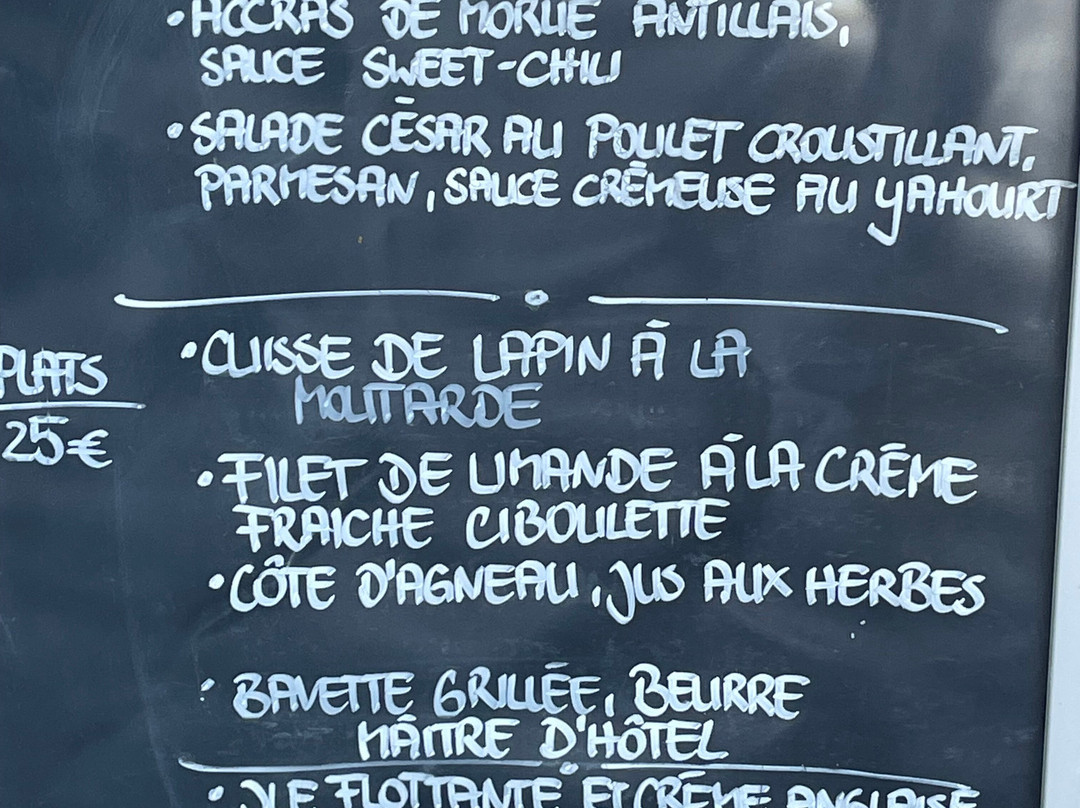 •ACCRAS DE MORUE ANTILLAIS,
SAUCE SWEET-CHILI
•SALADE CÉSAR AU POULET CROUSTILLANT,
PARMESAN, SAUCE CRÉMEUSE AU YAHOURT
PLATS
25€
•CUISSE DE LAPIN À LA
MOUTARDE
•FILET DE LIMANDE À LA CRÉME
FRAICHE CIBOULETTE
•CÔTE D'AGNEAU, JUS AUX HERBES
•BAVETTE GRILLÉE, BEURRE
MAÎTRE D'HÔTEL
•ILE FLOTTANTE ET CRÉME ANGLAISE